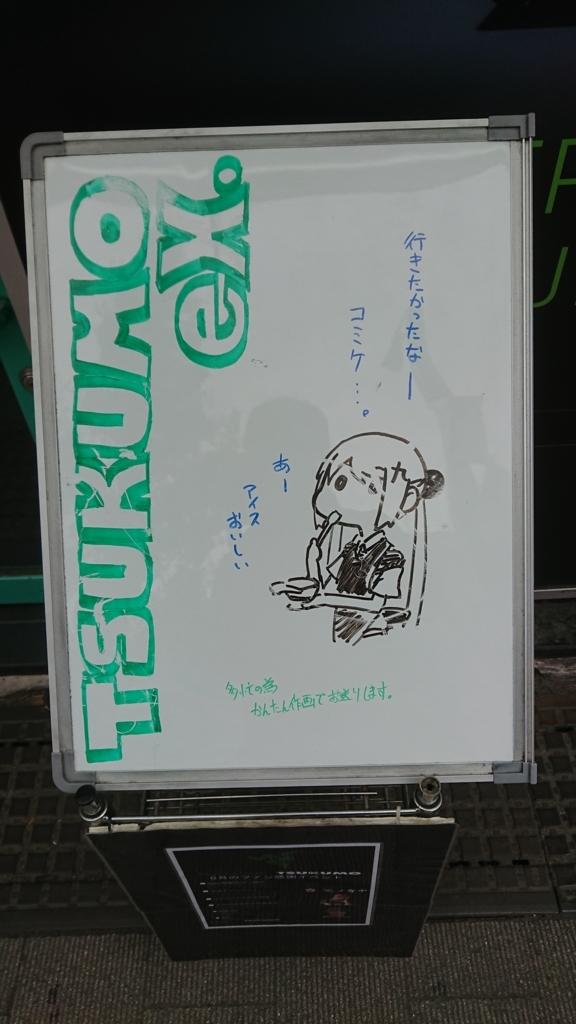 TSUKUMO
eX.
行きたかったなー
コミケ・・・。
あー
アイス
おいしい
多忙の為
かんたん作画でお送りします。
TSUKUMO